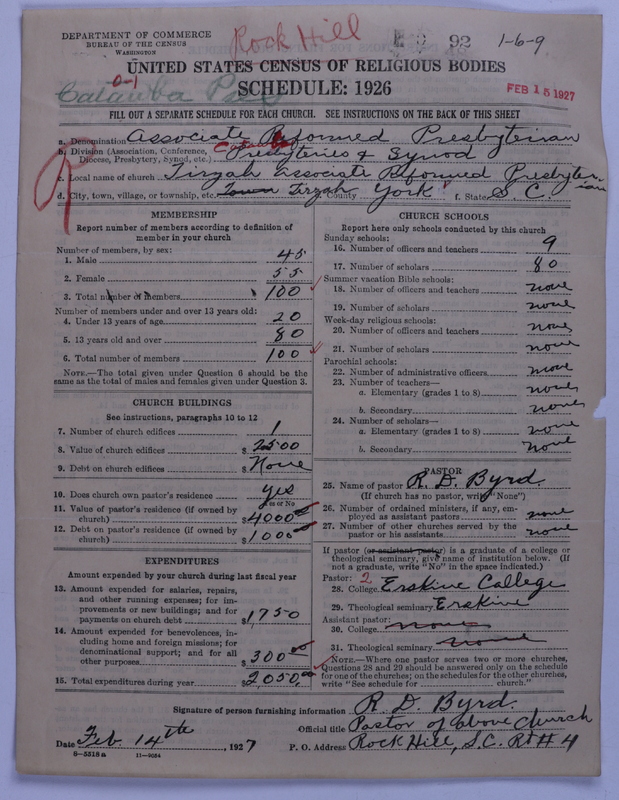 DEPARTMENT OF COMMERCE
BUREAU OF THE CENSUS
WASHINGTON
Rock Hill
92
1-6-9
UNITED STATES CENSUS OF RELIGIOUS BODIES
0-1
Catawba
SCHEDULE: 1926
FEB 15 1927
FILL OUT A SEPARATE SCHEDULE FOR EACH CHURCH. SEE INSTRUCTIONS ON THE BACK OF THIS SHEET
a. Denomination Associate Reformed Presbyterian
b. Division (Association, Conference, Diocese, Presbytery, Synod, etc.) Catawba Presbyteries & Synod
c. Local name of church Tirzah Associate Reformed Presbyterian
d. City, town, village, or township, etc. Town Tirzah County York f. State S. C.
MEMBERSHIP
Report number of members according to definition of
member in your church
Number of members, by sex:
1. Male 45
2. Female 55
3. Total number of members 100
Number of members under and over 13 years old:
4. Under 13 years of age 20
5. 13 years old and over 80
6. Total number of members 100
NOTE.—The total given under Question 6 should be the
same as the total of males and females given under Question 3.
CHURCH BUILDINGS
See instructions, paragraphs 10 to 12
7. Number of church edifices 1
8. Value of church edifices $ 2500
9. Debt on church edifices $ None
10. Does church own pastor's residence yes
Yes or No
11. Value of pastor's residence (if owned by
church) $4000 00
12. Debt on pastor's residence (if owned by
church) $1000 00
EXPENDITURES
Amount expended by your church during last fiscal year
13. Amount expended for salaries, repairs,
and other running expenses; for im-
provements or new buildings; and for
payments on church debt $1,750
14. Amount expended for benevolences, in-
cluding home and foreign missions; for
denominational support; and for all
other purposes $300 00
15. Total expenditures during year $2050 00
CHURCH SCHOOLS
Report here only schools conducted by this church
Sunday schools:
16. Number of officers and teachers 9
17. Number of scholars 80
Summer vacation Bible schools:
18. Number of officers and teachers none
19. Number of scholars none
Week-day religious schools:
20. Number of officers and teachers none
21. Number of scholars none
Parochial schools:
22. Number of administrative officers none
23. Number of teachers—
a. Elementary (grades 1 to 8) none
b. Secondary none
24. Number of scholars—
a. Elementary (grades 1 to 8) none
b. Secondary none
PASTOR
25. Name of pastor R. D. Byrd
(If church has no pastor, write "None")
26. Number of ordained ministers, if any, em-
ployed as assistant pastors none
27. Number of other churches served by the
pastor or his assistants none
If pastor (or assistant pastor) is a graduate of a college or
theological seminary, give name of institution below. (If
not a graduate, write "No" in the space indicated.)
Pastor: 2
28. College Erskine College
29. Theological seminary Erskine
Assistant pastor:
30. College none
31. Theological seminary none
NOTE.—Where one pastor serves two or more churches,
Questions 28 and 29 should be answered only on the schedule
for one of the churches; on the schedules for the other churches,
write "See schedule for church."
Signature of person furnishing information R. D. Byrd.
Official title Pastor of above church
Date Feb 14th, 1927 P. O. Address Rock Hill, S.C. Rt #4
8-5318a 11-9084